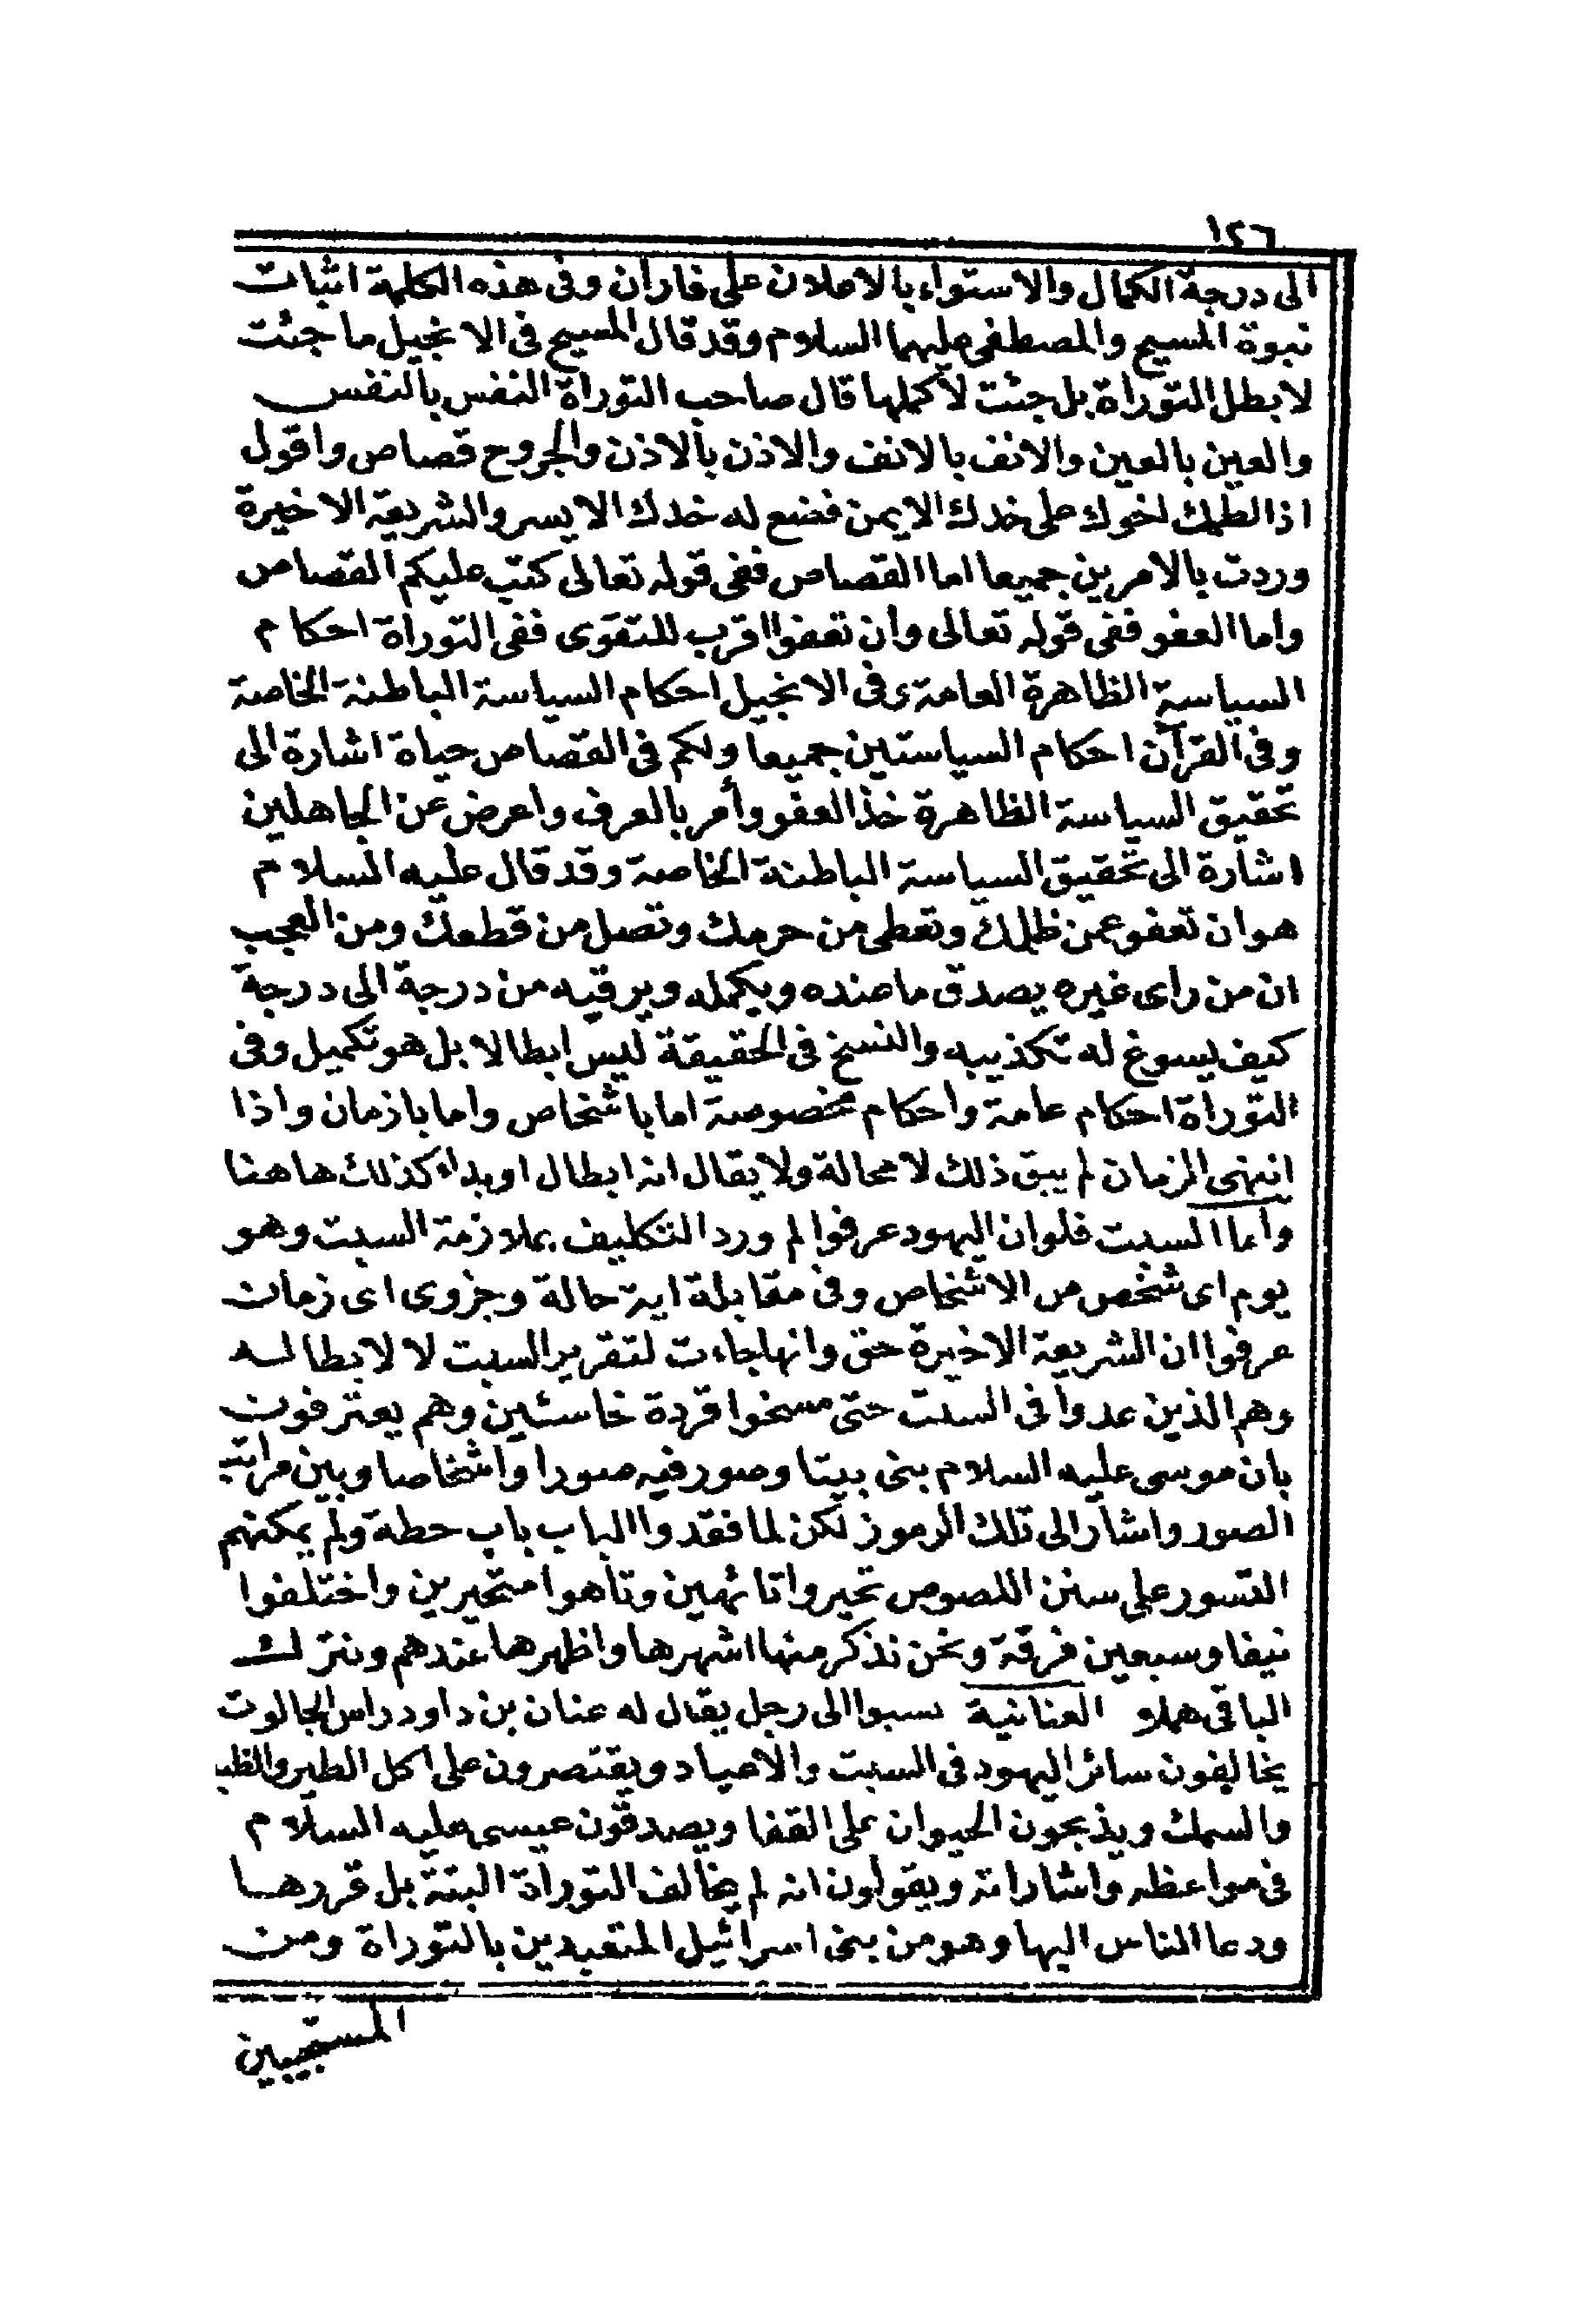 ١٢٦
الى درجة الكمال والاستواء بالاعلان على فاران وفى هذه الكلمة اثبات
نبوة المسيح والمصطفى عليهما السلام وقد قال المسيح فى الانجيل ما جئت
لابطل التوراة بل جئت لأكملها قال صاحب التوراة النفس بالنفس
والعين بالعين والانف بالانف والاذن بالاذن والجروح قصاص واقول
اذا لطمك اخوك على خدك الايمن فضع له خدك الايسر والشريعة الاخيرة
وردت بالامرين جميعا اما القصاص ففى قوله تعالى كتب عليكم القصاص
واما العفو ففى قوله تعالى وأن تعفوا اقرب للتقوى ففى التوراة احكام
السياسة الظاهرة العامة وفى الانجيل احكام السياسة الباطنة الخاصة
وفى القرآن احكام السياستين جميعا ولكم فى القصاص حياة اشارة الى
تحقيق السياسة الظاهرة خذ العفو وأمر بالعرف واعرض عن الجاهلين
اشارة الى تحقيق السياسة الباطنة الخاصة وقد قال عليه السلام
هو ان تعفو عمن ظلمك وتعطى من حرمك وتصل من قطعك ومن العجب
ان من راى غيره يصدق ما عنده ويكمله ويرقيه من درجة الى درجة
كيف يسوغ له تكذيبه والنسخ فى الحقيقة ليس ابطالا بل هو تكميل وفى
التوراة احكام عامة واحكام مخصوصة اما باشخاص واما بازمان واذا
انتهى الزمان لم يبق ذلك لا محالة ولا يقال انه ابطال او بداء كذلك هاهنا
واما السبت فلو ان اليهود عرفوا لم ورد التكليف بملازمة السبت وهو
يوم اى شخص من الاشخاص وفى مقابلة اية حالة وجزوى اى زمان
عرفوا ان الشريعة الاخيرة حق وانها جاءت لتقرير السبت لا لابطاله
وهم الذين عدوا فى السبت حتى مسخوا قردة خاسئين وهم يعترفون
بان موسى عليه السلام بنى بيتا وصور فيه صورا واشخاصا وبين مراتب
الصور واشار الى تلك الرموز لكن لما فقدوا الباب باب حطة ولم يمكنهم
التسور على سنن اللصوص تحيروا تائهين وتاهوا متحيرين واختلفوا
نيفا وسبعين فرقة ونحن نذكر منها اشهرها واظهرها عندهم ونترك
الباقى هملا العنانية نسبوا الى رجل يقال له عنان بن داود راس الجالوت
يخالفون سائر اليهود فى السبت والاعياد ويقتصرون على اكل الطير والظبى
والسمك ويذبحون الحيوان على القفا ويصدقون عيسى عليه السلام
فى مواعظه واشاراته ويقولون انه لم يخالف التوراة البتة بل قررها
ودعا الناس اليها وهو من بنى اسرائيل المتعبدين بالتوراة ومن
المستجيبين